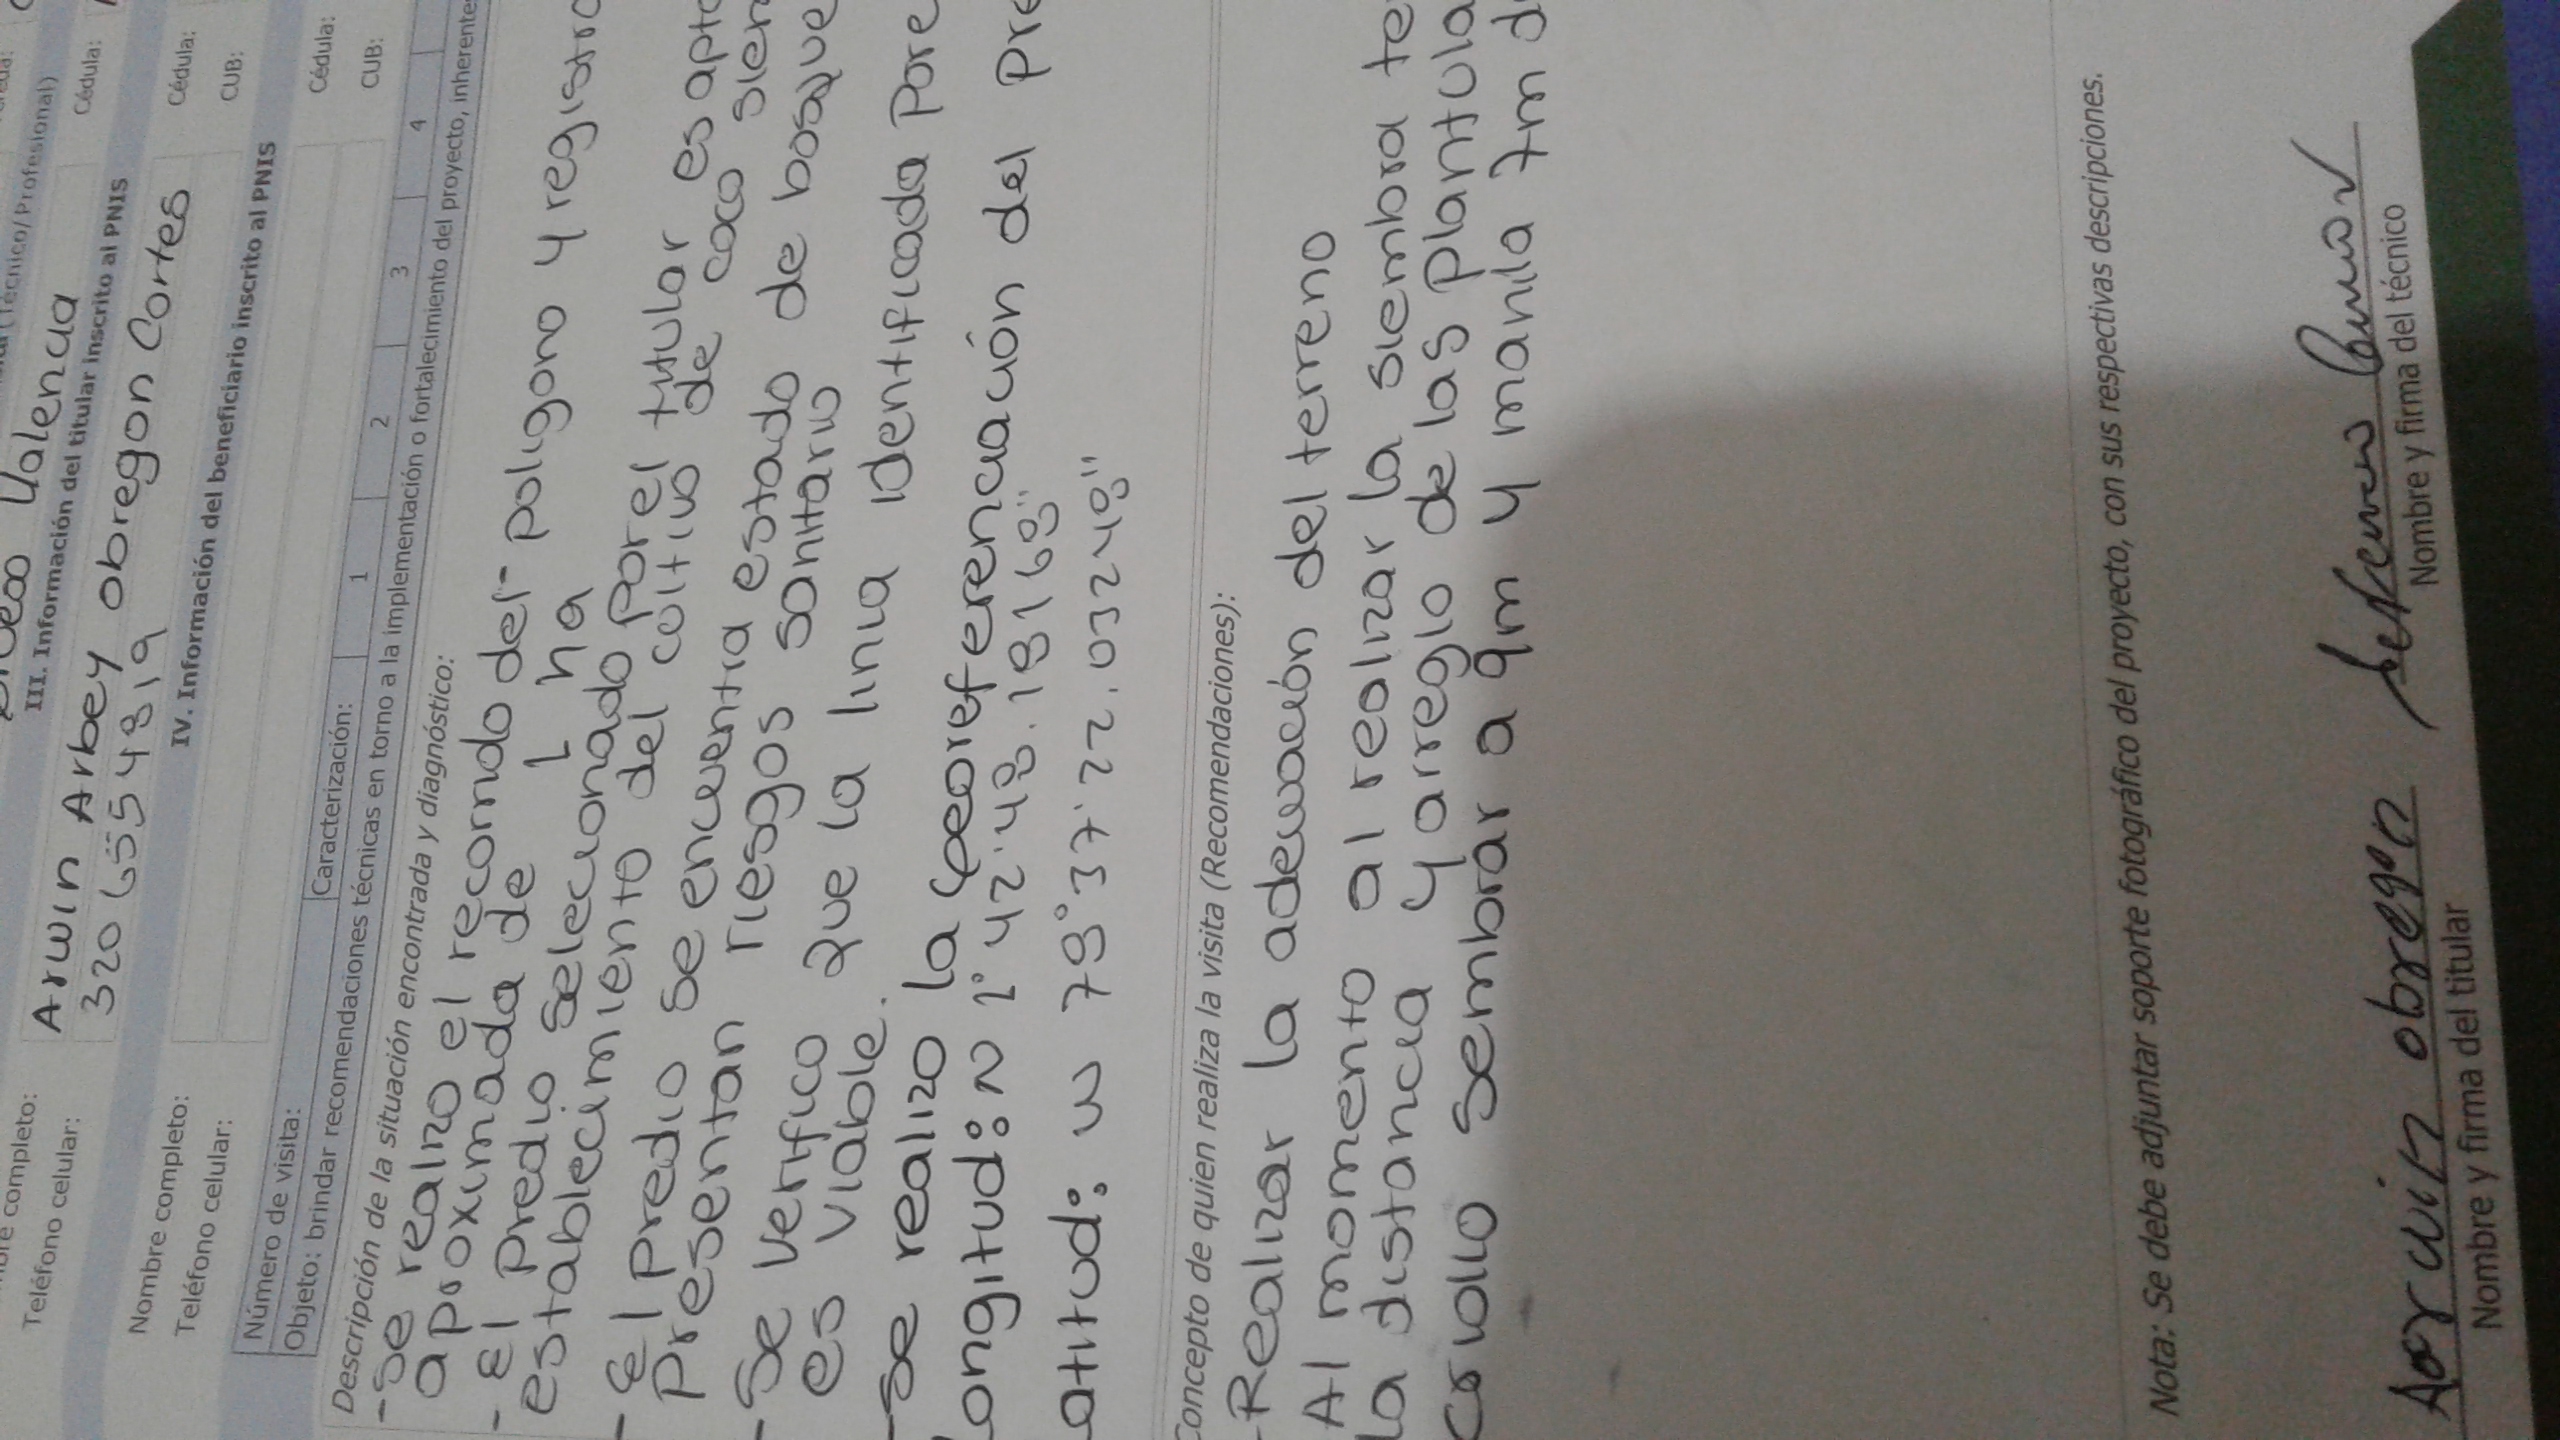 Valencia
(Técnico/Profesional)
III. Información del titular inscrito al PNIS
completo: Arwin Arbey obregon Cortes Cédula:
Teléfono celular: 320 6554819
IV. Información del beneficiario inscrito al PNIS
Cédula:
CUB:
Nombre completo: Cédula:
Teléfono celular: CUB:
Número de visita: Caracterización: 1 2 3 4
Objeto: brindar recomendaciones técnicas en torno a la implementación o fortalecimiento del proyecto, inherente
Descripción de la situación encontrada y diagnóstico:
- Se realizo el recorrido del poligono y registro
aproximada de 1 ha
- El predio seleccionado por el titular es apto
establecimiento del cultivo de coco sien
- El predio se encuentra estado de bosque
Presentan riesgos sanitario
- Se verifico que la linia identificada Pore
es viable.
- Se realizo la georeferenciación del Pre
Longitud: N 2° 42' 48.18168"
Latitud: W 78° 37' 22.03248"
Concepto de quien realiza la visita (Recomendaciones):
- Realizar la adecuación del terreno
Al momento al realizar la siembra te
la distancia y arreglo de las Plantula
Criollo sembrar a 9m y manila 7m d
Nota: Se debe adjuntar soporte fotográfico del proyecto, con sus respectivas descripciones.
Aorwin obregon
Nombre y firma del titular
Nombre y firma del técnico